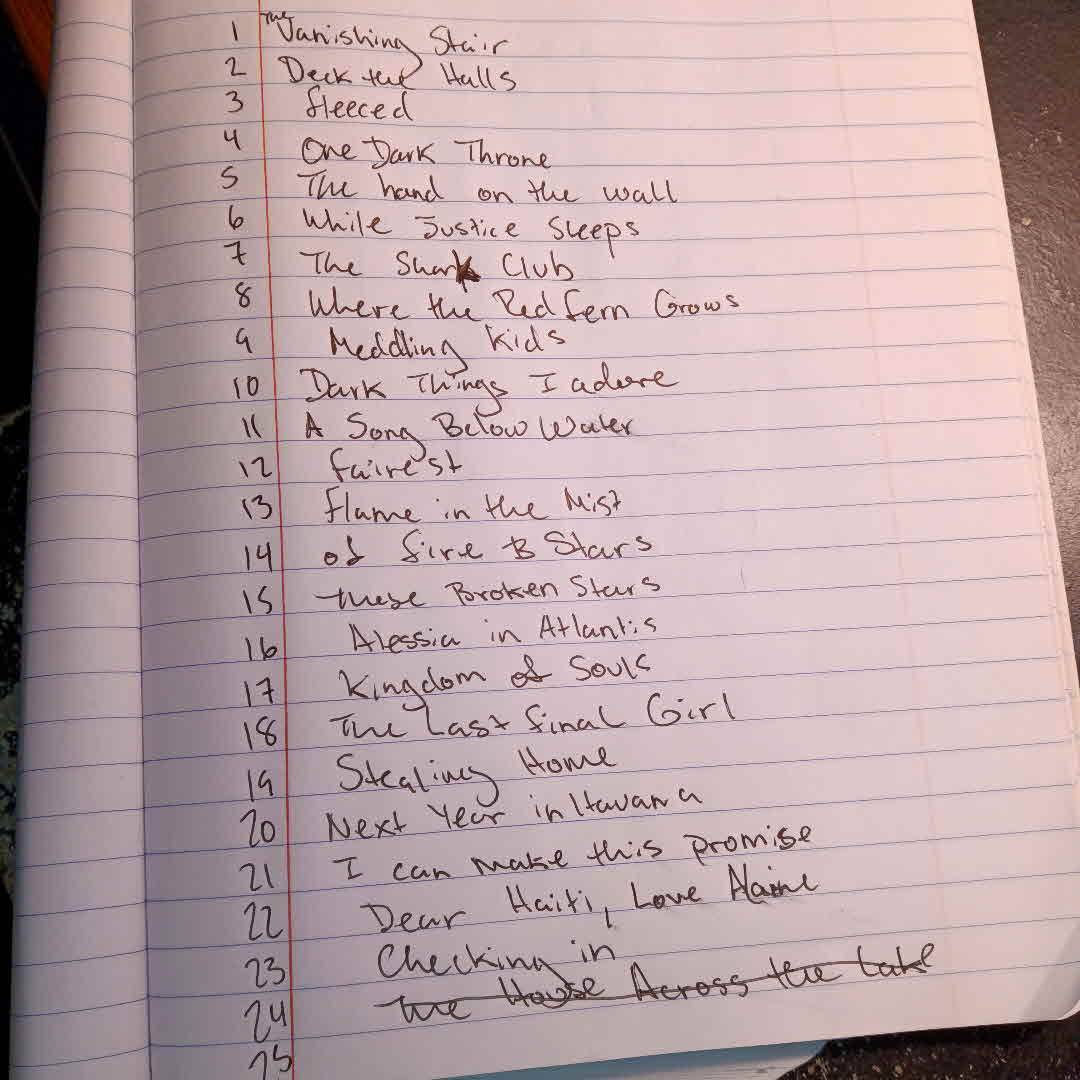 1 The Vanishing Stair
2 Deck the Halls
3 fleeced
4 One Dark Throne
5 The hand on the wall
6 While Justice Sleeps
7 The Shark Club
8 Where the Red fern Grows
9 Meddling Kids
10 Dark Things I adore
11 A Song Below Water
12 fairest
13 flame in the Mist
14 of fire & Stars
15 these Broken Stars
16 Alessia in Atlantis
17 Kingdom of Souls
18 The Last final Girl
19 Stealing Home
20 Next Year in Havana
21 I can make this promise
22 Dear Haiti, Love Alaine
23 Checking in
24 The House Across the Lake
25